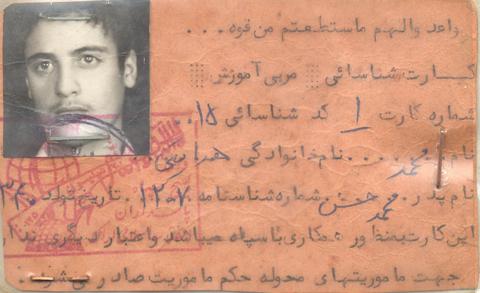 واعد والهم ما ستطعتم من قوه ...
کارت شناسائی مربی آموزش
شماره کارت ۱ کد شناسائی ۱۵..
نام محمد .... نام خانوادگی
نام پدر. محمد حسن شماره شناسنامه ۱۲۰۷. تاریخ تولد
این کارت بمنظور همکاری با سپاه میباشد و اعتبار دیگری ندارد
جهت ماموریتهای محوله حکم ماموریت صادر میشود..